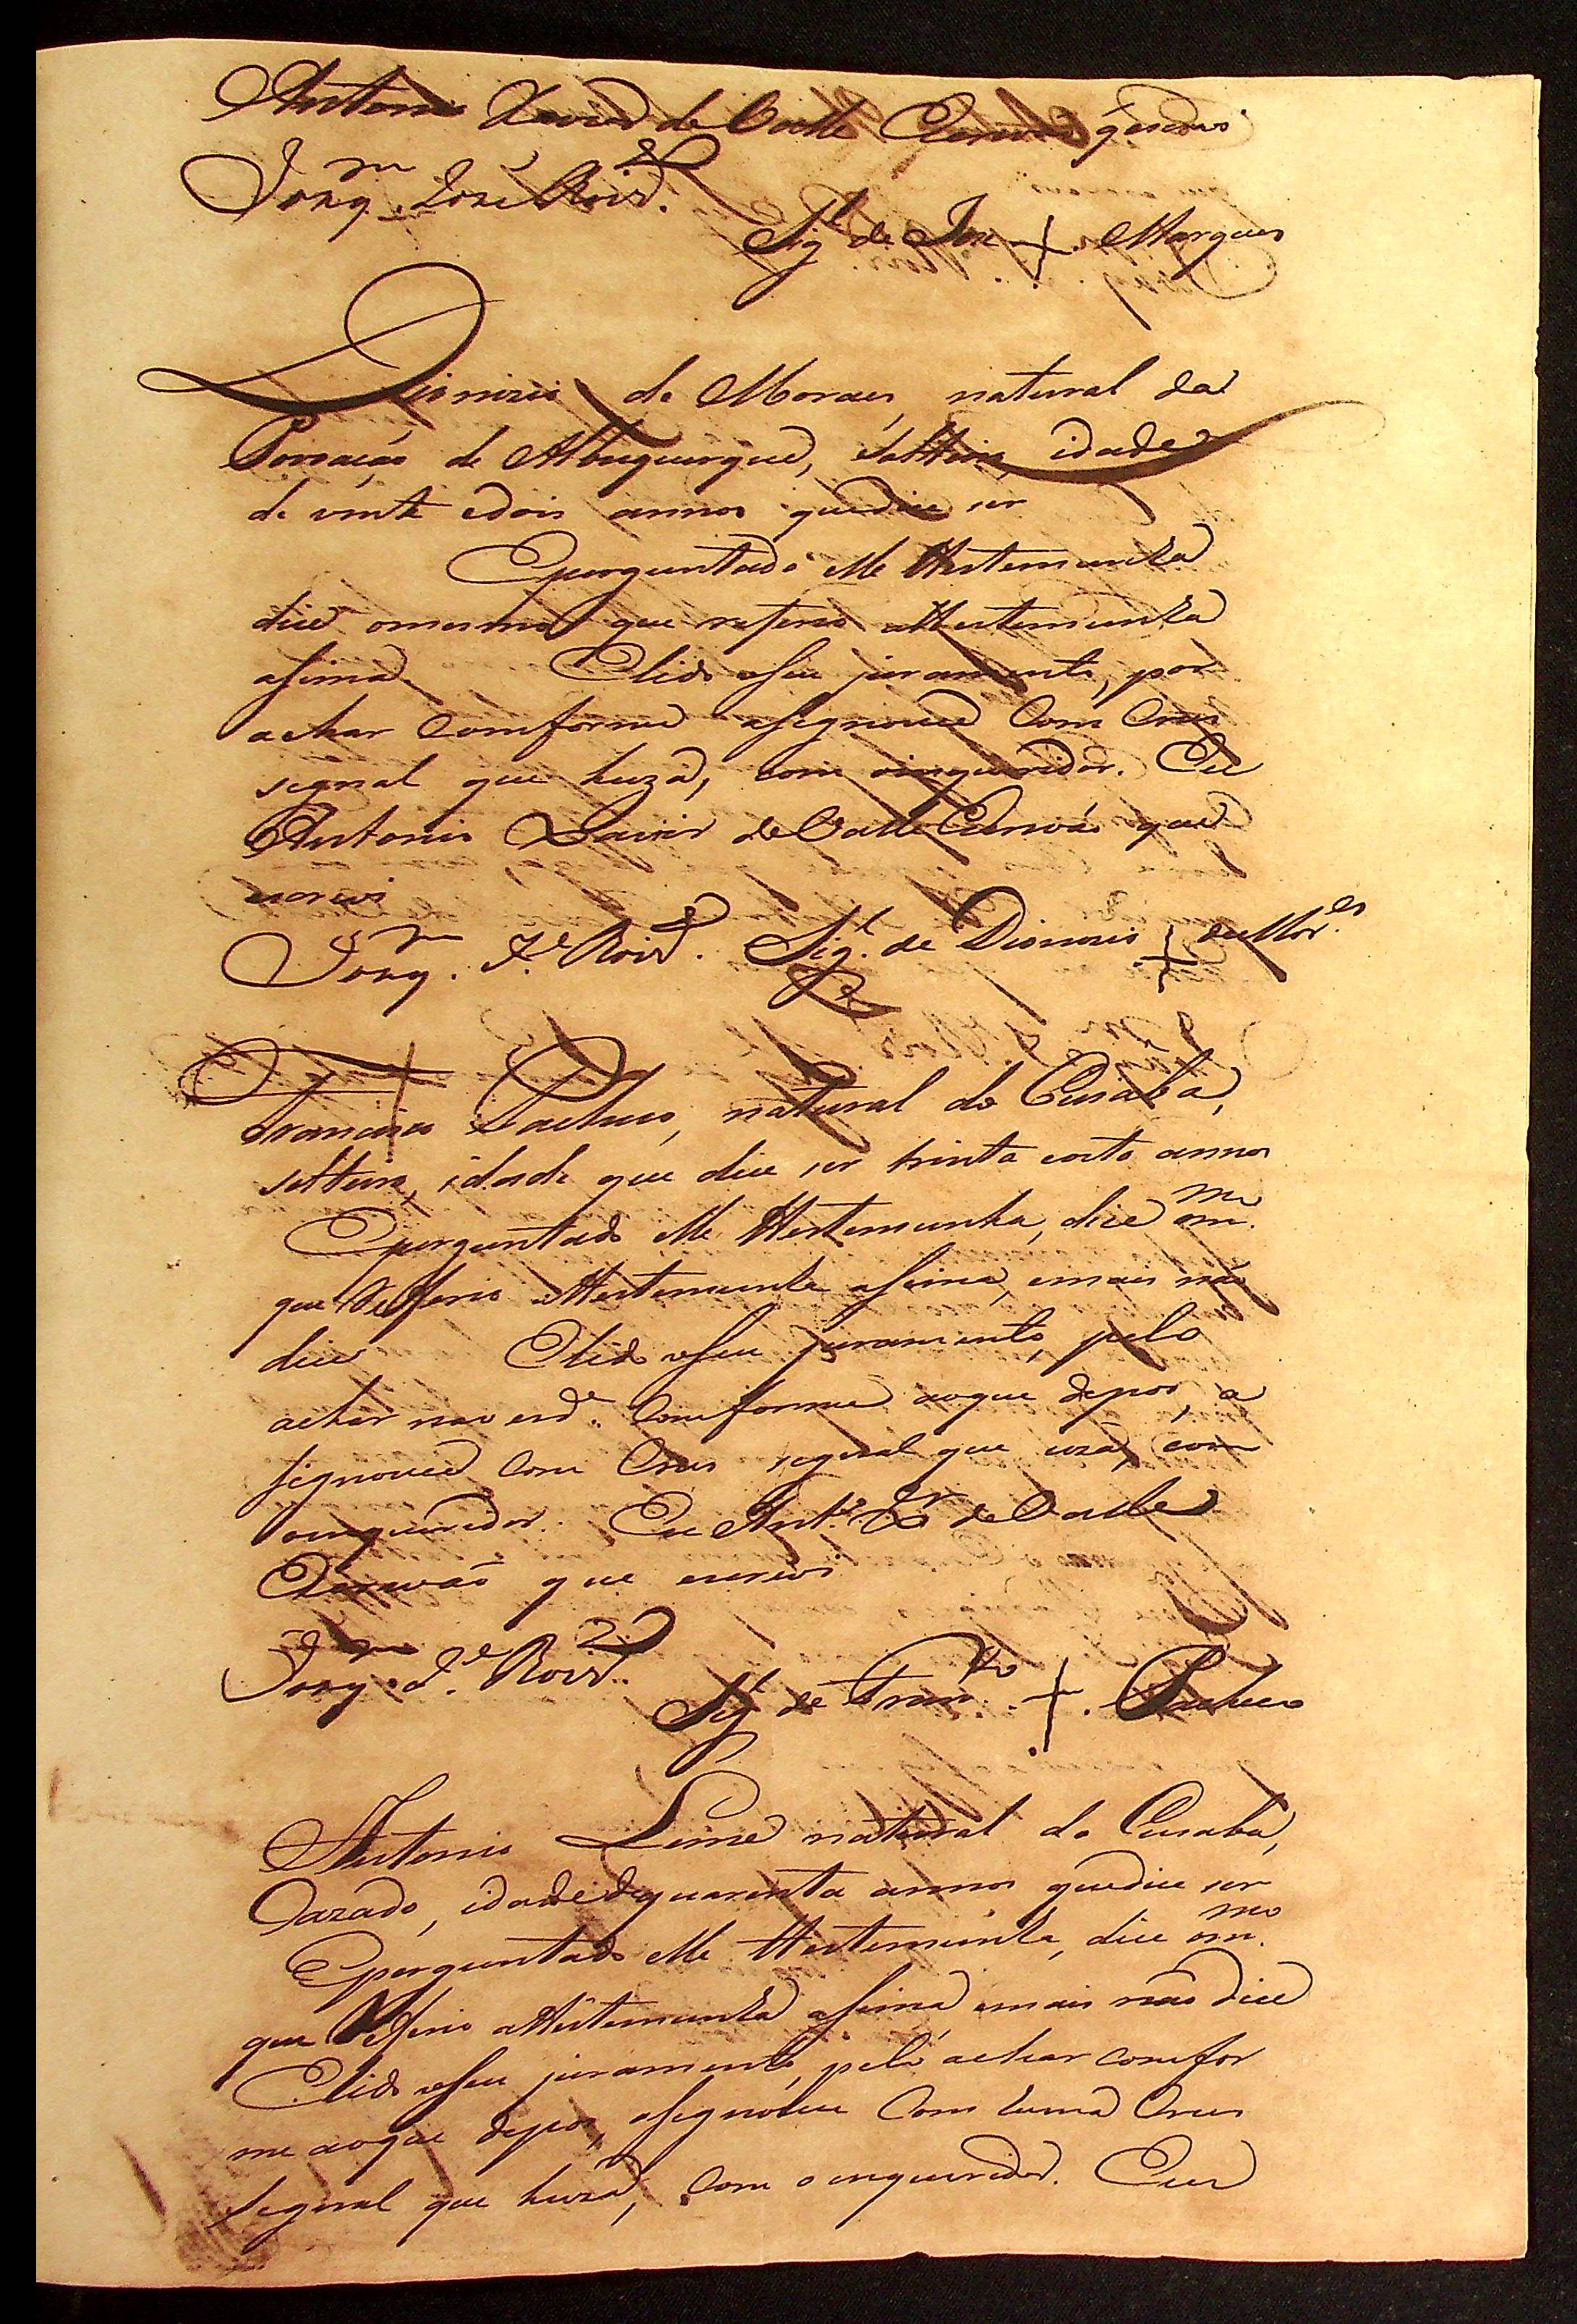 Antonio Xavier de Valle Escrivaõ q̃ escrevi
Joaq.m José Roiz.
Sig.l de Joze + Marques
Dionizio de Moraes, natural da
Povoaçaõ de Albuquerque, solteiro, idade
de vinte e dois annos que dice ser
E perguntado elle Testemunha
dice o mesmo que referio a testemunha
asima. E lido o seu juramento, por
achar comforme asignouce com Crus
segnal que huza, com o inqueridor. Eu
Antonio Xavier de Valle Escrivaõ que
escrevi
Joaq.m J.e Roiz. Sig.l de Dionizio + de Mor.es
Francisco Pacheco, natural do Cuiaba,
solteiro, idade que dice ser trinta e oito annos
E perguntado elle Testemunha, dice o m.mo
que Referio a testemunha asima, e mais naõ
dice E lido o seu juramento, pelo
achar na verd.e comforme ao que depos, a
signouce com Crus segnal que uza, com
o inqueridor. Eu Ant.o X.er de Valle
Escrivaõ que escrevi
Joaq.m J.e Roiz.
Sig.l de Fran.co + Pacheco
Antonio Leme natural do Cuiaba,
Cazado, idade de quarenta annos que dice ser
E perguntado elle Testemunha, dice o m.mo
que Referio a testemunha asima, e mais naõ dice
E lido o seu juramento, pelo achar comfor
me ao que depos, asignouce com huma Crus
segnal que huza, com o inqueridor. Eu